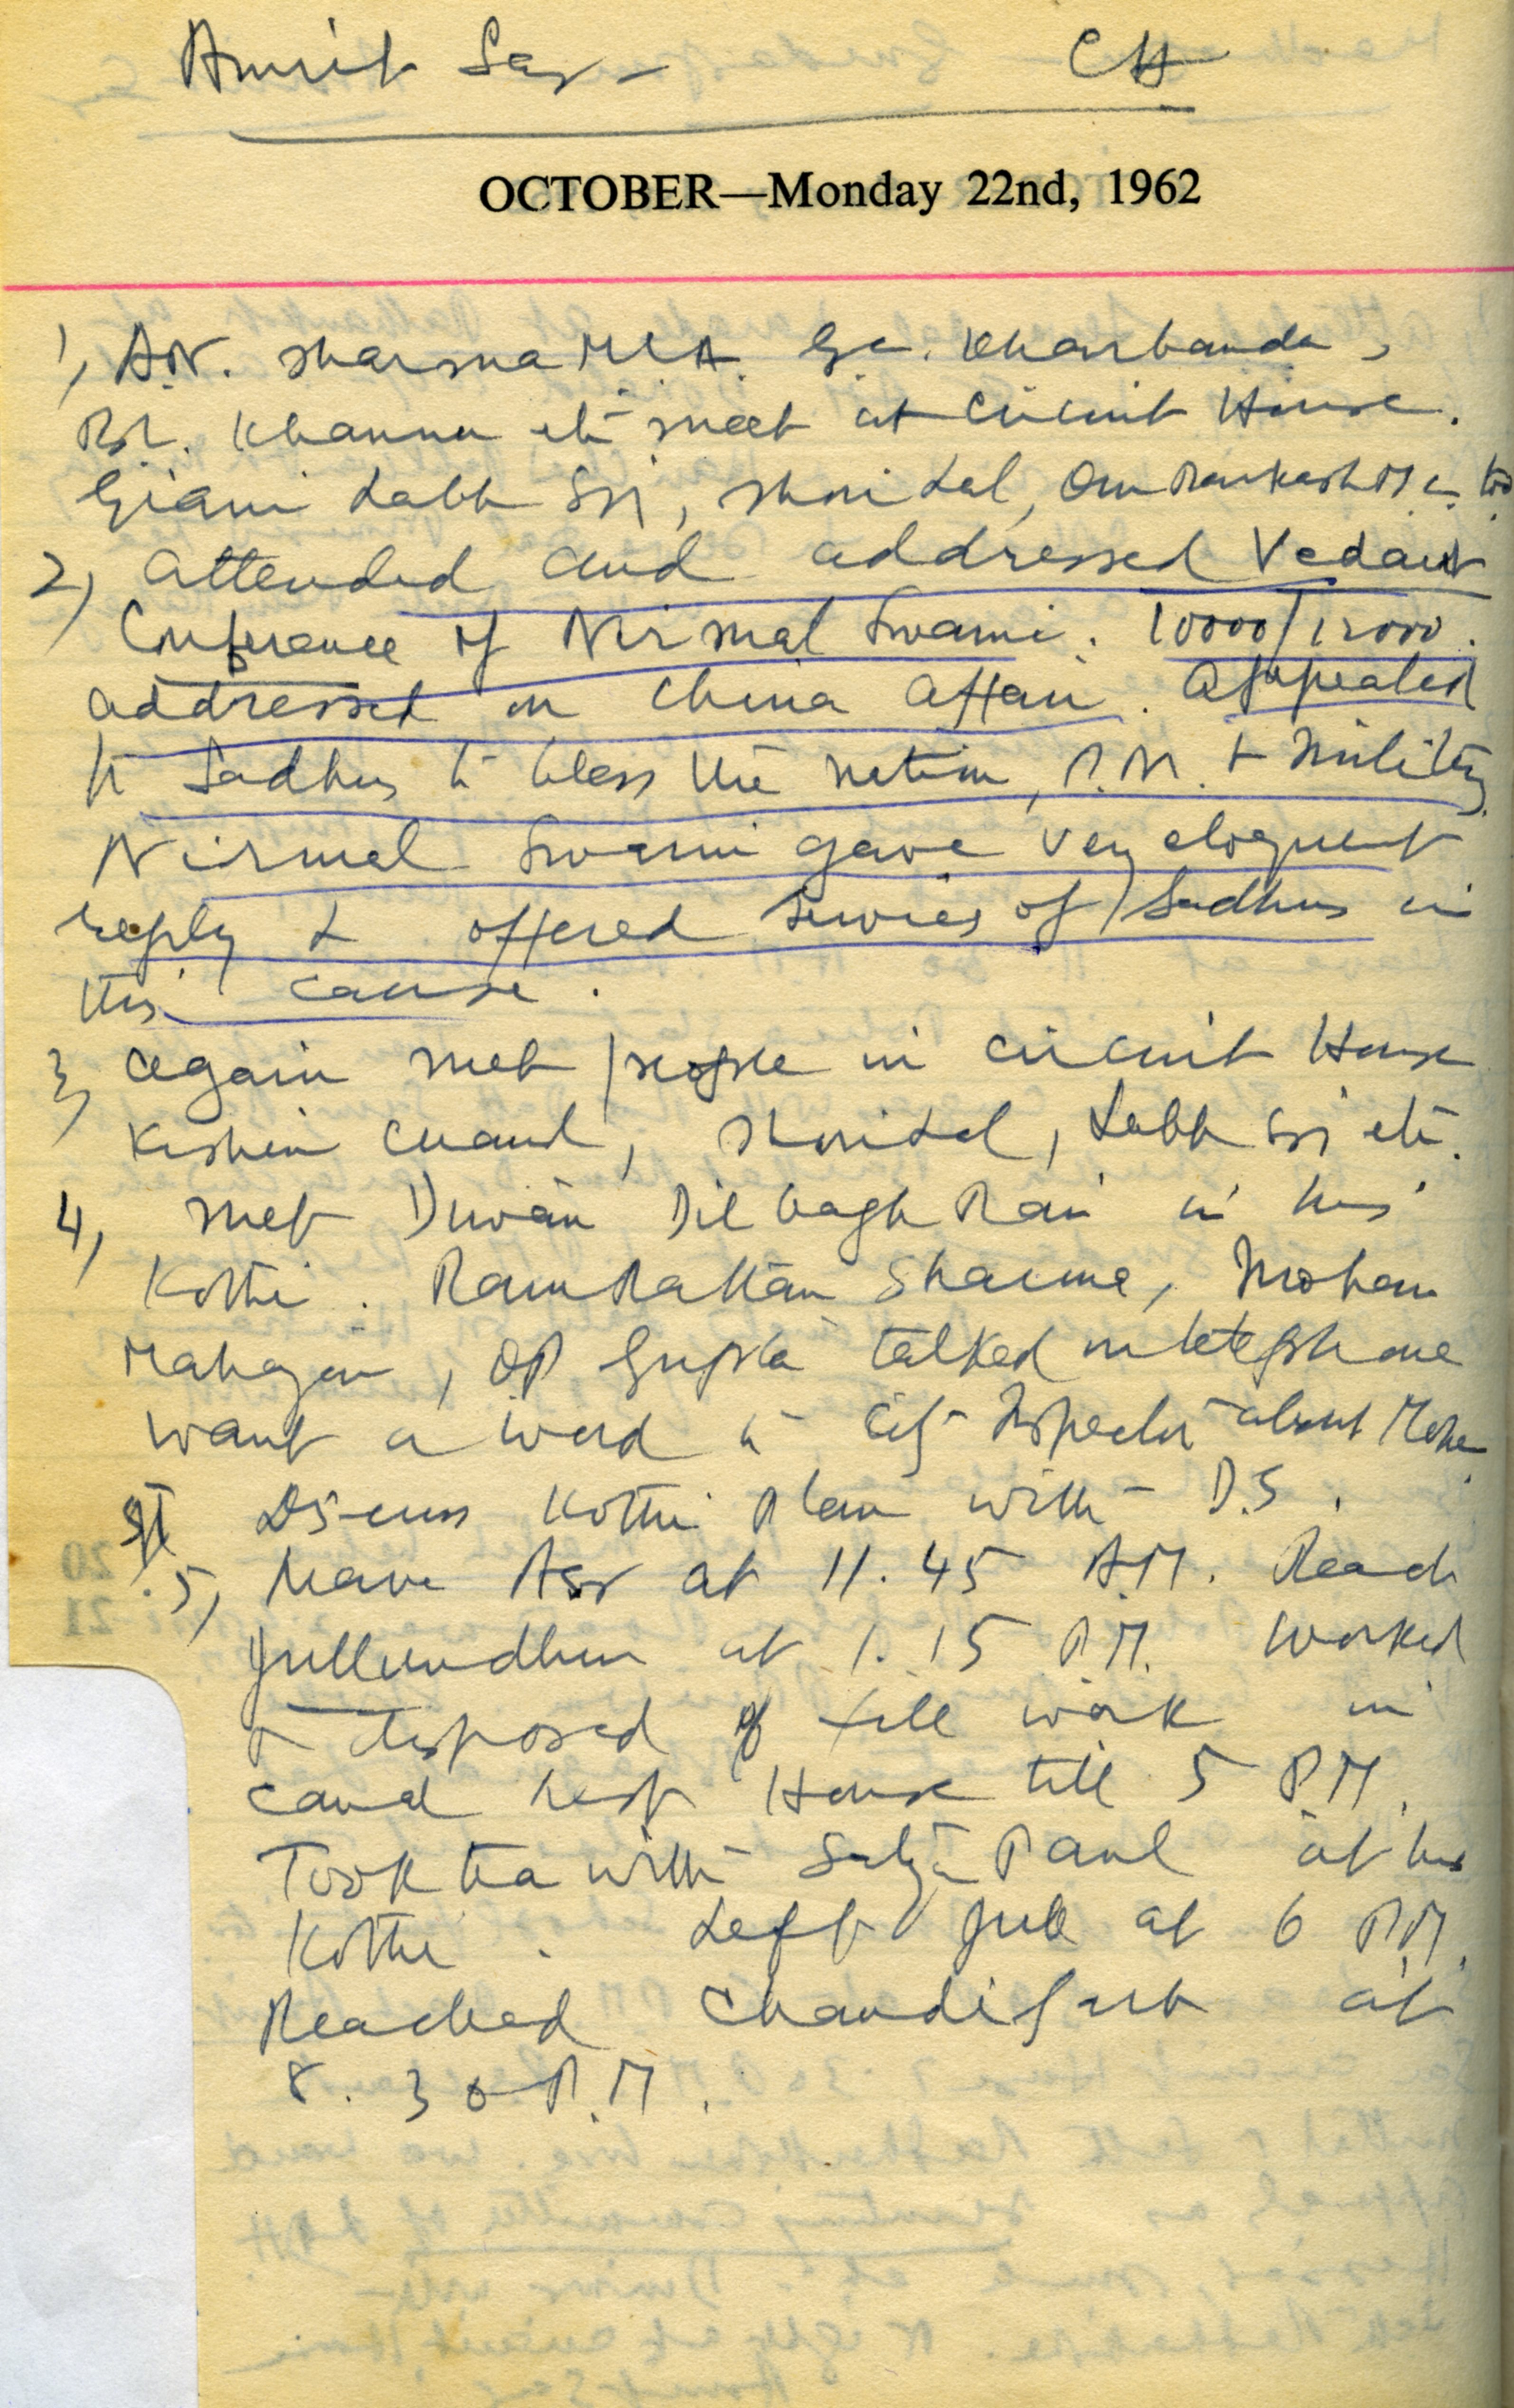 Amrit Sar - CH
OCTOBER—Monday 22nd, 1962
1, A.N. Sharma MLA. G.C. Kharbanda,
R.L. Khanna etc meet at Circuit House.
Giani Labh Sn, Shori Lal, Om Parkash too
2, Attended and addressed Vedant
Conference of Nirmal Swami. 10000/12000.
addressed on China Affair. Appealed
to Sadhus to bless the nation, P.M. + Military
Nirmal Swami gave very eloquent
reply & offered Services of Sadhus in
this cause.
3, Again met people in Circuit House
Kishen Chand, Shori Lal, Labh Sn etc.
4, Met Diwan Dil bagh Rai in his
Kothi. Ram Rattan Sharma, Mohan
Mahajan, OP Gupta talked on telephone
want a word to City Inspector about Mohan
Discuss Kothi Plan with D.S.
5, Leave Asr at 11.45 A.M. Reach
Jullundhur at 1.15 P.M. Worked
& disposed of till work in
canal rest House till 5 P.M.
Took tea with Satya Paul at his
Kothi. Left Jull at 6 P.M.
Reached Chandigarh at
8.30 P.M.